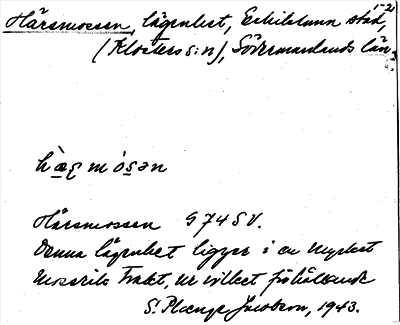 1-2
Härsmossen, lägenhet, Eskilstuna stad,
(Klosters s:n), Södermanlands län.
hæʂmósən
Härsmossen G74SV.
Denna lägenhet ligger i en mycket
mosserik trakt, ur vilket förhållande
S. Plænge Jacobson, 1943.